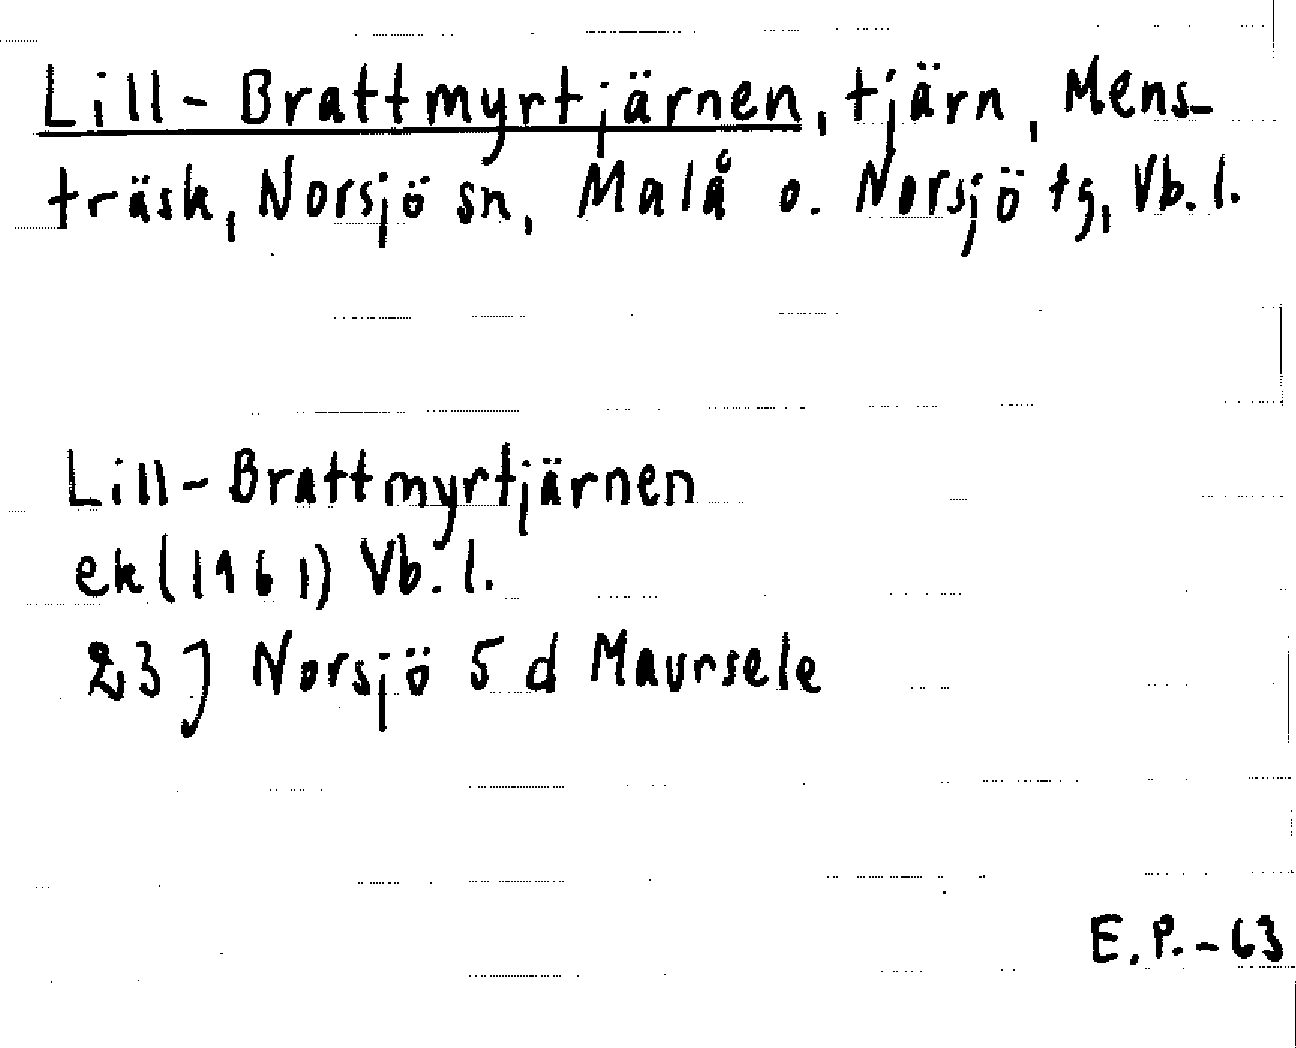 Lill-Brattmyrtjärnen, tjärn, Mens-
träsk, Norsjö sn, Malå o. Norsjö tg, Vb. l.
Lill-Brattmyrtjärnen
ek (1961) Vb. l.
23 J Norsjö 5 d Maursele
E.P.-63